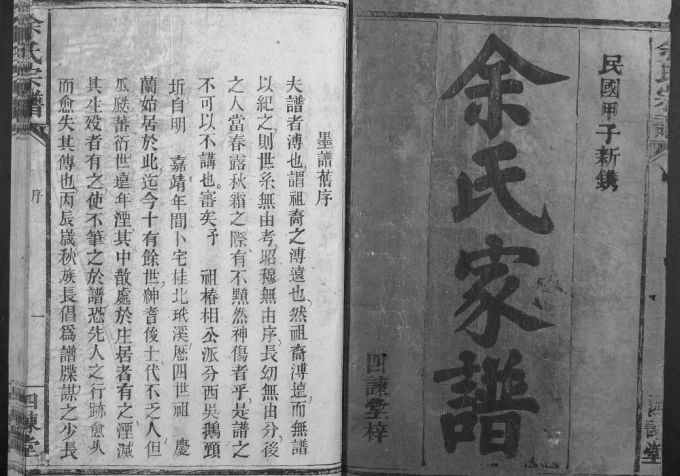 民國甲子新鐫
余氏家譜
四諫堂梓
墨譜舊序
夫譜者溥也謂祖裔之溥遠也然祖裔溥遠而無譜
以紀之則世系無由考昭穆無由序長幼無由分後
之人當春露秋霜之際有不顯然神傷者乎是譜之
不可以不講也審矣予 祖椿相公派分西吳鵝頸
圻自明 嘉靖年間卜宅桂北珬溪歷四世祖 慶
蘭始居於此迄今十有餘世紳耆俊士代不乏人但
瓜瓞蕃衍世遠年湮其中散處於庄居者有之湮滅
其生殁者有之使不筆之於譜恐先人之行跡愈久
而愈失其傳也丙辰歲秋族長倡爲譜牒謀之少長
余氏宗譜
序
一
四諫堂